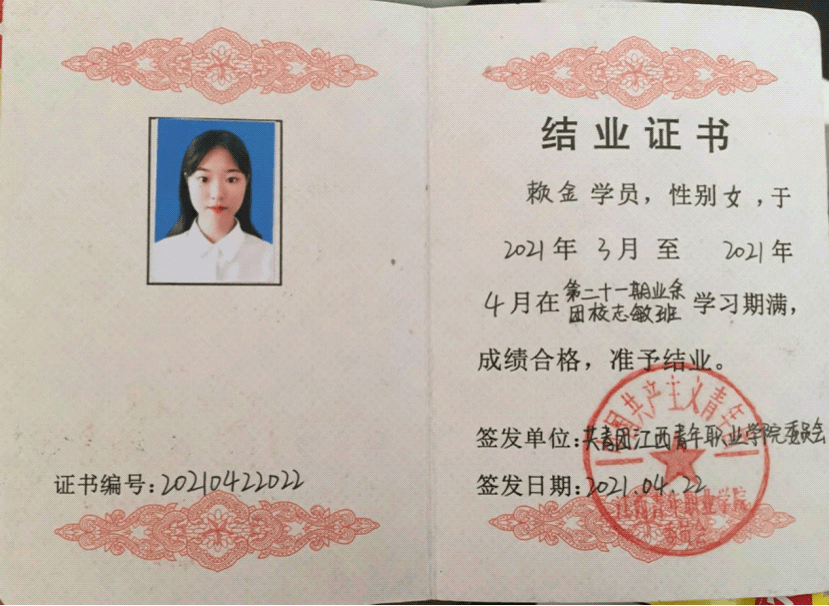 证书编号:20210422022
结业证书
赖金 学员，性别女，于
2021年 3月 至 2021年
4月在 第二十一期业余团校志敏班 学习期满，
成绩合格，准予结业。
签发单位:共青团江西青年职业学院委员会
签发日期:2021.04.22
中国共产主义青年团
江西青年职业学院
委员会